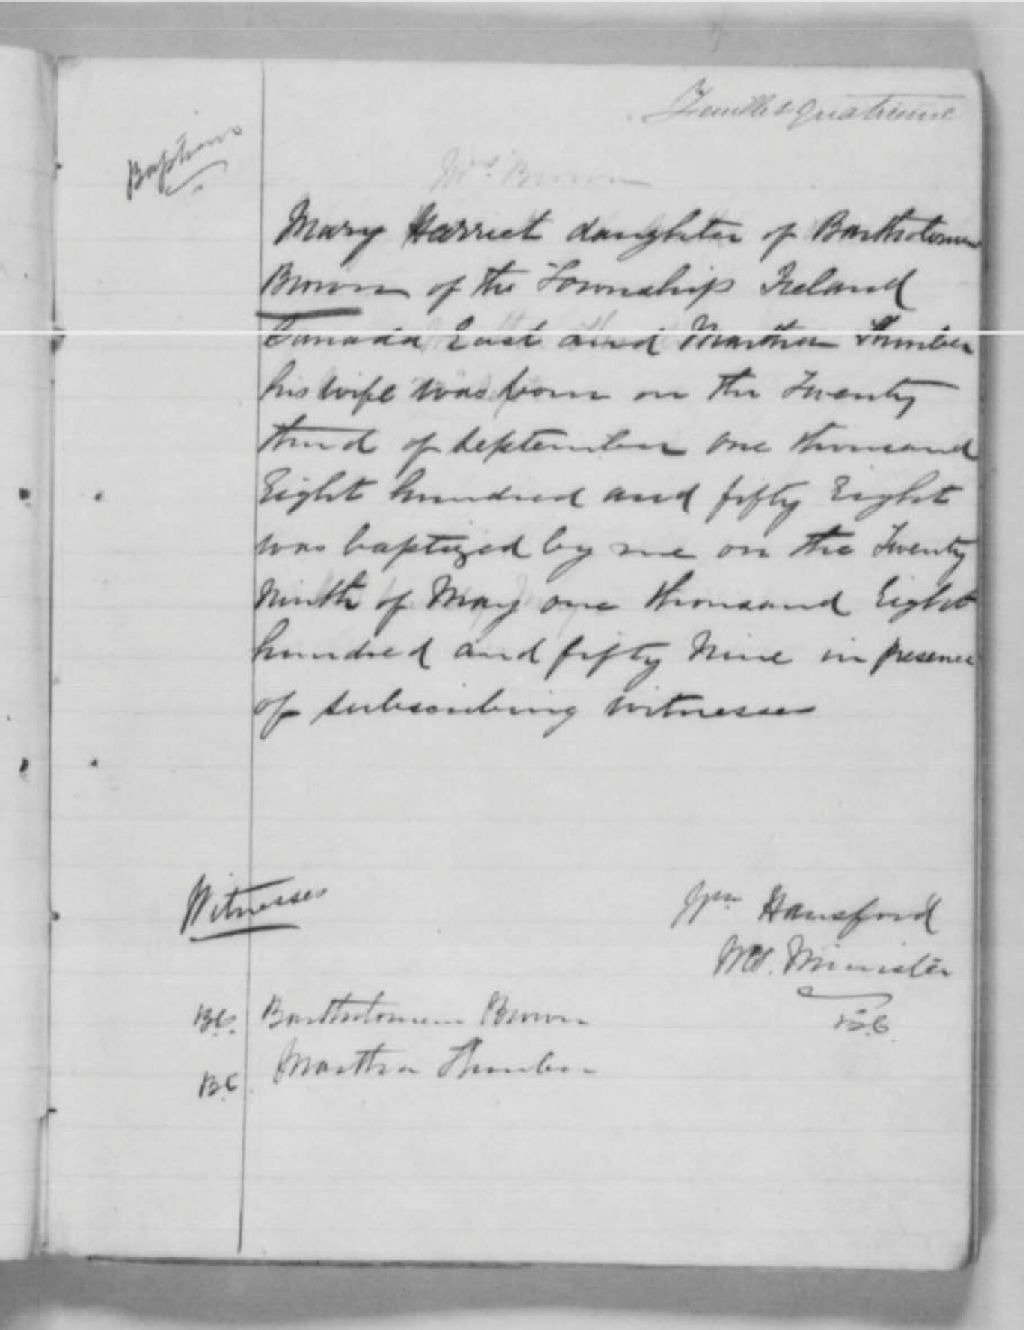 Feuillet quatrieme
Baptism
Brown
Mary Harriet daughter of Bartholomew
Brown of the Township Ireland
Canada East and Martha Thurber
his wife was born on the Twenty
third of September one thousand
Eight hundred and fifty Eight
was baptized by me on the Twenty
Ninth of May one thousand Eight
hundred and fifty Nine in presence
of subscribing witnesses
Witnesses
Hansford
Minister
B.C. Bartholomew Brown
B.C. Martha Thurber